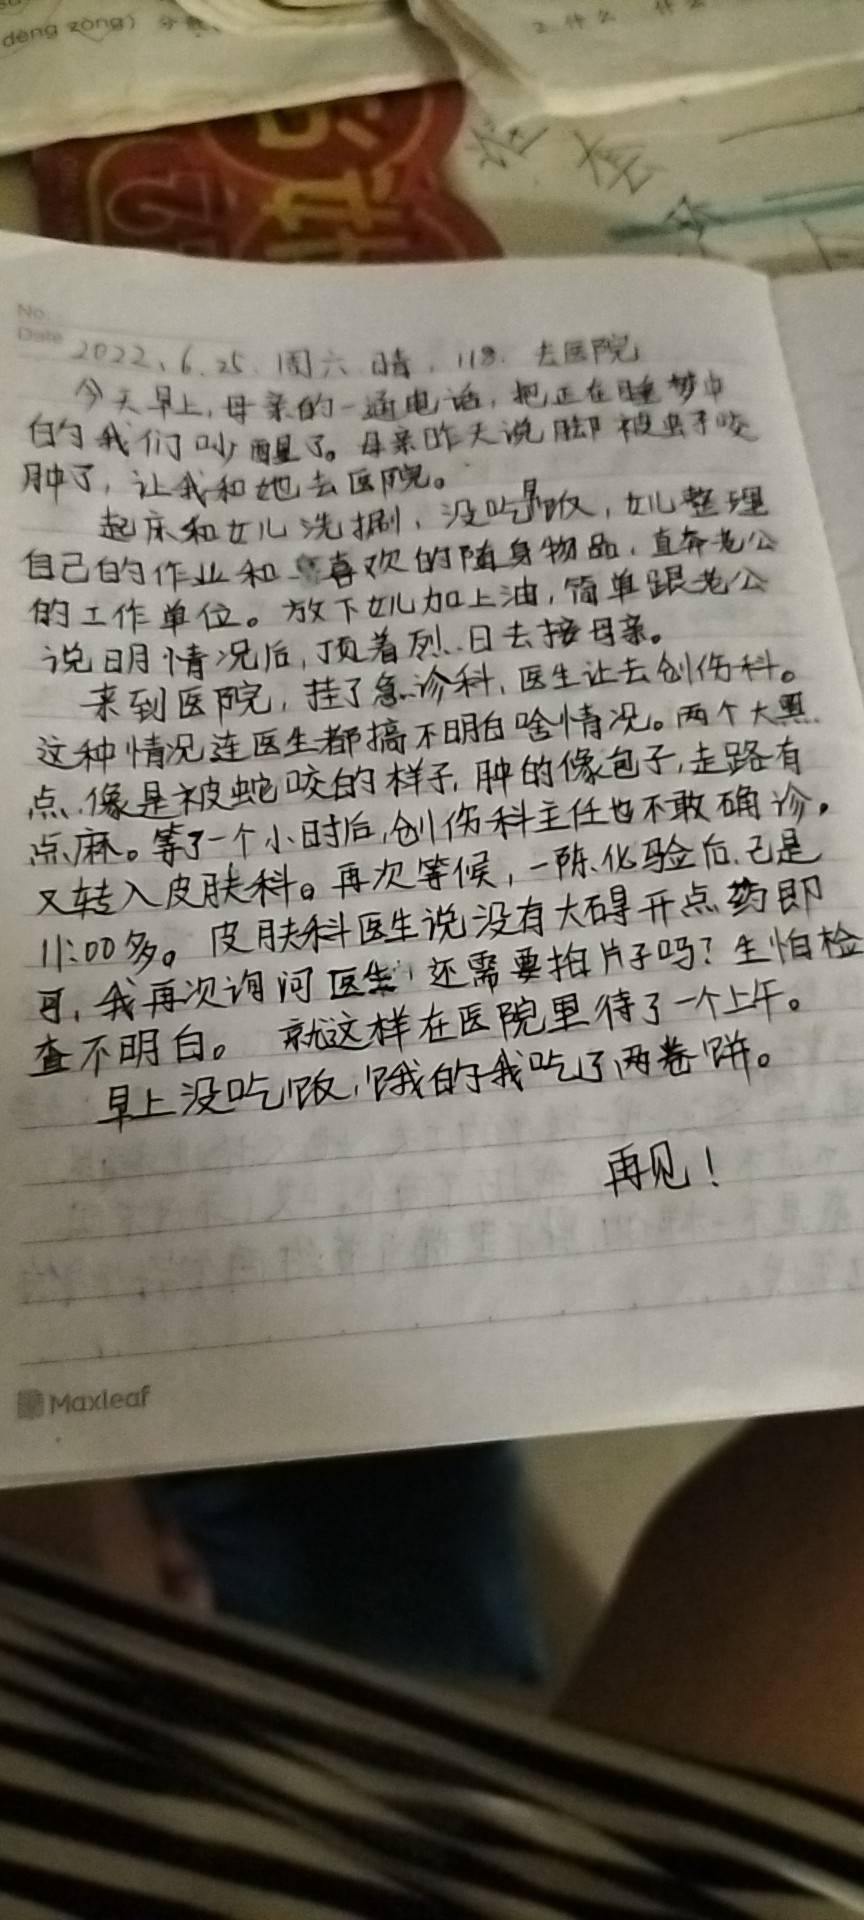 dèng zòng)
2.什么 什么
No.
Date
2022、6.25.周六.晴.118.去医院
今天早上,母亲的一通电话,把正在睡梦中
的我们吵醒了。母亲昨天说脚被虫子咬
肿了,让我和她去医院。
起床和女儿洗捌,没吃早饭,女儿整理
自己的作业和喜欢的随身物品,直奔老公
的工作单位。放下女儿加上油,简单跟老公
说明情况后,顶着烈日去接母亲。
来到医院,挂了急诊科,医生让去创伤科。
这种情况连医生都搞不明白啥情况。两个大黑
点,像是被蛇咬的样子,肿的像包子,走路有
点麻。等了一个小时后,创伤科主任也不敢确诊。
又转入皮肤科。再次等候,一阵化验后,已是
11:00多。皮肤科医生说没有大碍开点药即
可,我再次询问医生,还需要拍片子吗?生怕检
查不明白。就这样在医院里待了一个上午。
早上没吃饭,饿的我吃了两卷饼。
再见!
Maxleaf